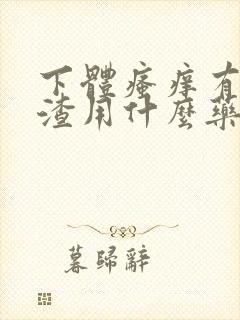 下體瘙痒有
渣用什麼藥
暮歸辭